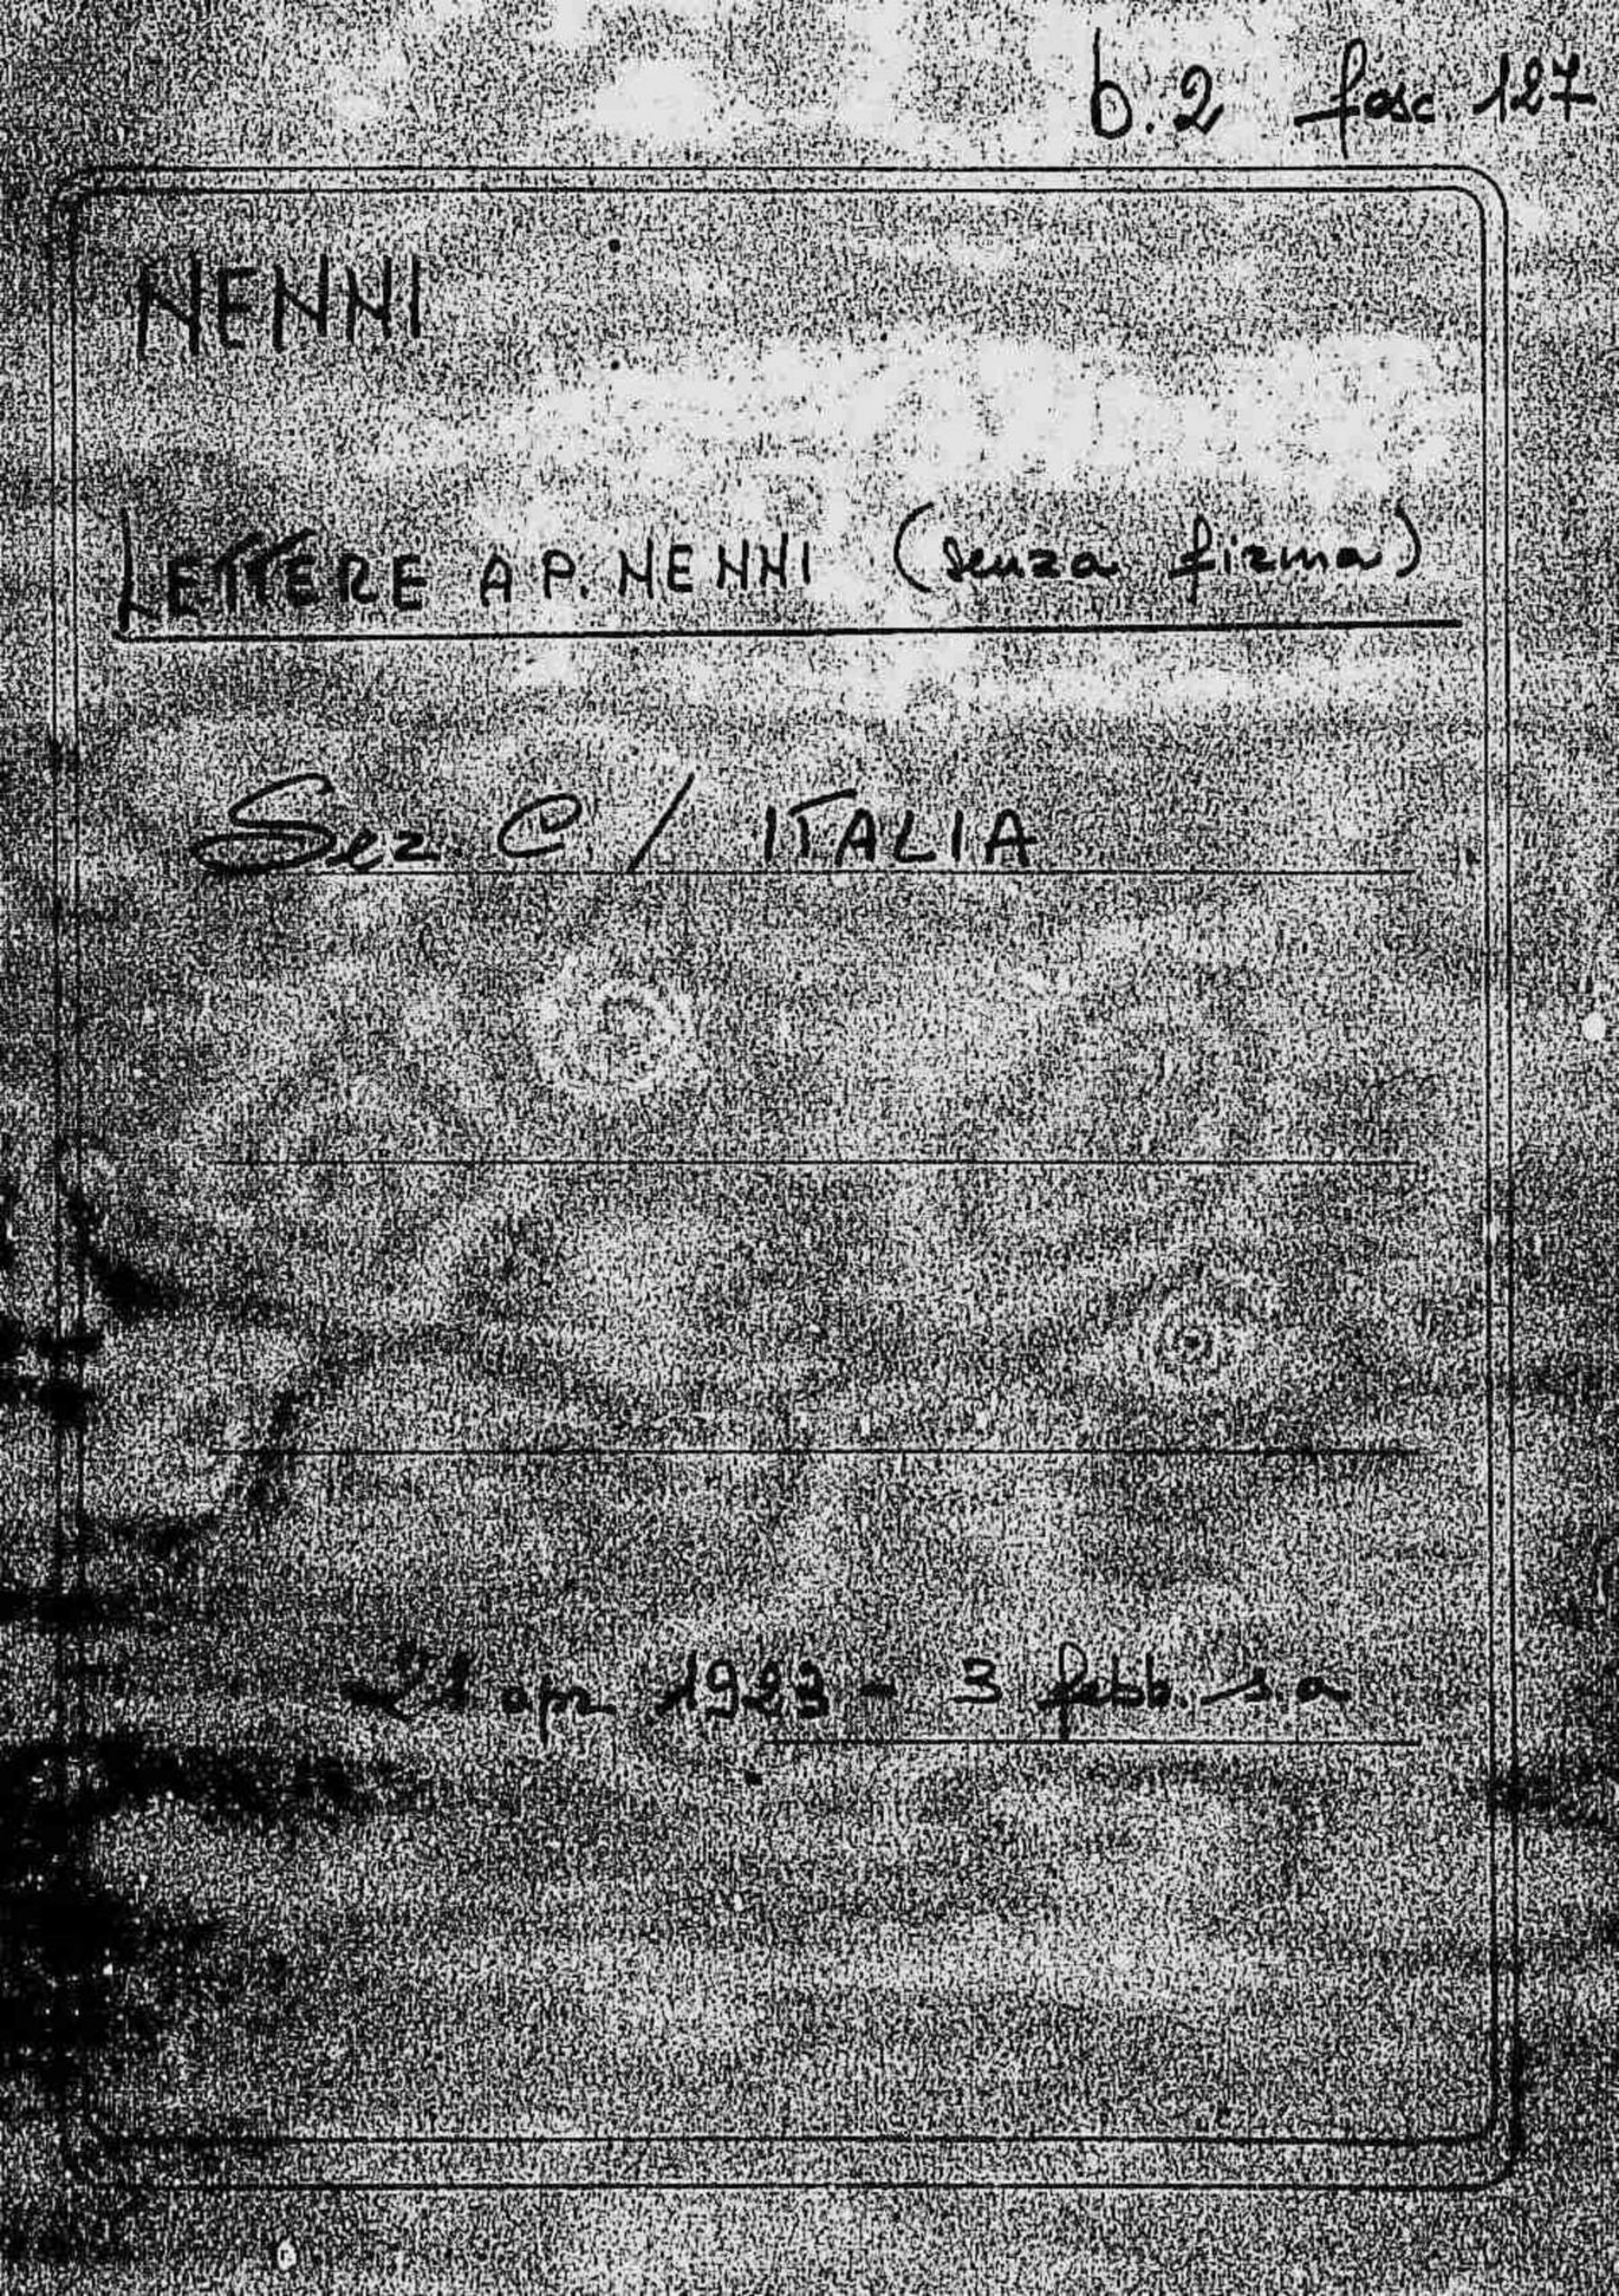 b. 2 fasc. 127
NENNI
LETTERE A P. NENNI (senza firma)
Sez. C. / ITALIA
21 apr 1923 - 3 febb. s.a